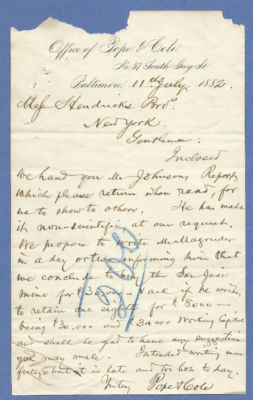 Office of Pope & Cole,
No. 57 South Gay St.
Baltimore, 11th July 1882.
Mess Hendricks Bros.
New York.
Gentlemen:
Inclosed
We hand you Mr Johnsons Report
which please return when read, for
me to show to others. He has made
it non-scientific at our request.
We propose to write
in a day or two informing him that
we conclude to buy the San Jose
mine for $ & ask if he wishes
to retain one eighth for $ 8000—
being $30.000 and 34000 Working Capital
and shall be glad to have any suggestion
you may make. Intended writing more
fully but it is late and too hot to day.
Pope & Cole